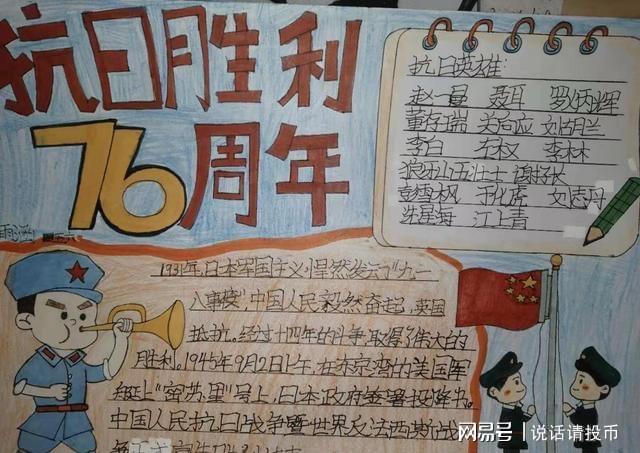 抗日胜利
76周年
抗日英雄:
赵一曼 聂耳 罗炳辉
董存瑞 关向应 刘胡兰
李白 左权 李林
狼牙山五壮士 谢晋元
彭雪枫 马化虎 刘志丹
冼星海 江上青
1931年,日本军国主义悍然发动了"九一
八事变",中国人民毅然奋起,英勇
抵抗。经过十四年的斗争,取得了伟大的
胜利。1945年9月2日上午,在东京湾的美国军
舰上"密苏里"号上,日本政府签署投降书。
中国人民抗日战争暨世界反法西斯战
网易号 | 说话请投币